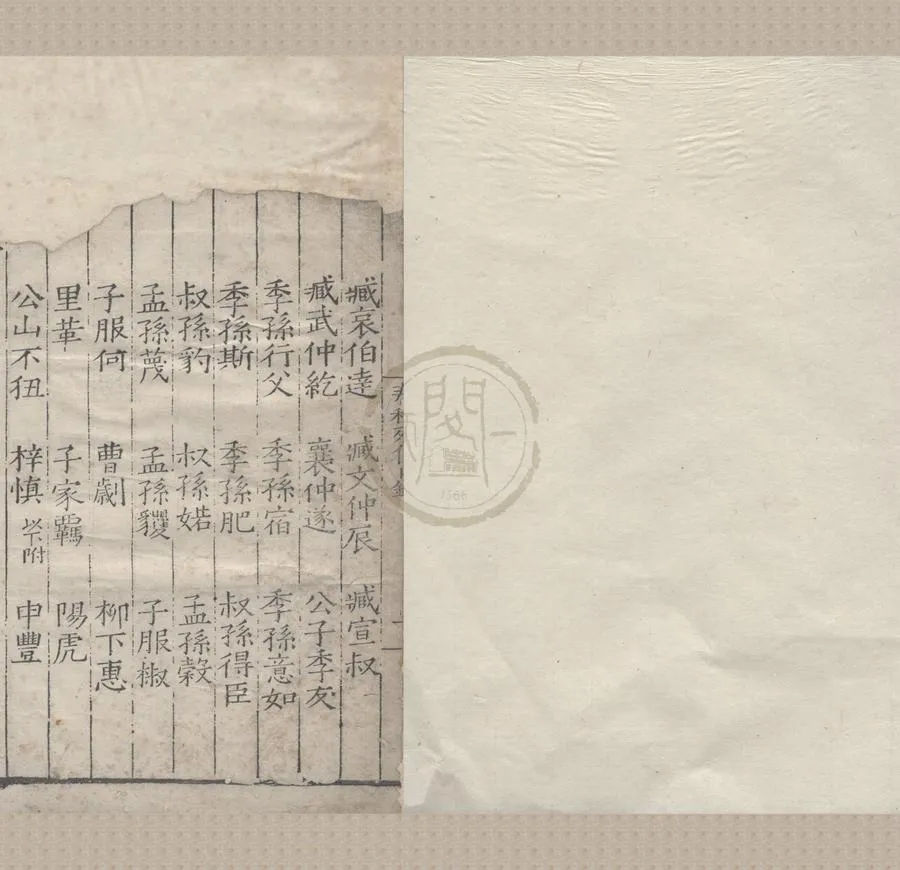 臧哀伯達 臧文仲辰 臧宣叔
臧武仲紇 襄仲遂 公子季友
季孫行父 季孫宿 季孫意如
季孫斯 季孫肥 叔孫得臣
叔孫豹 叔孫婼 孟孫穀
孟孫蔑 孟孫貜 子服椒
子服何 曹劌 柳下惠
里革 子家羈 陽虎
公山不狃 梓慎 以下附 申豐
1566